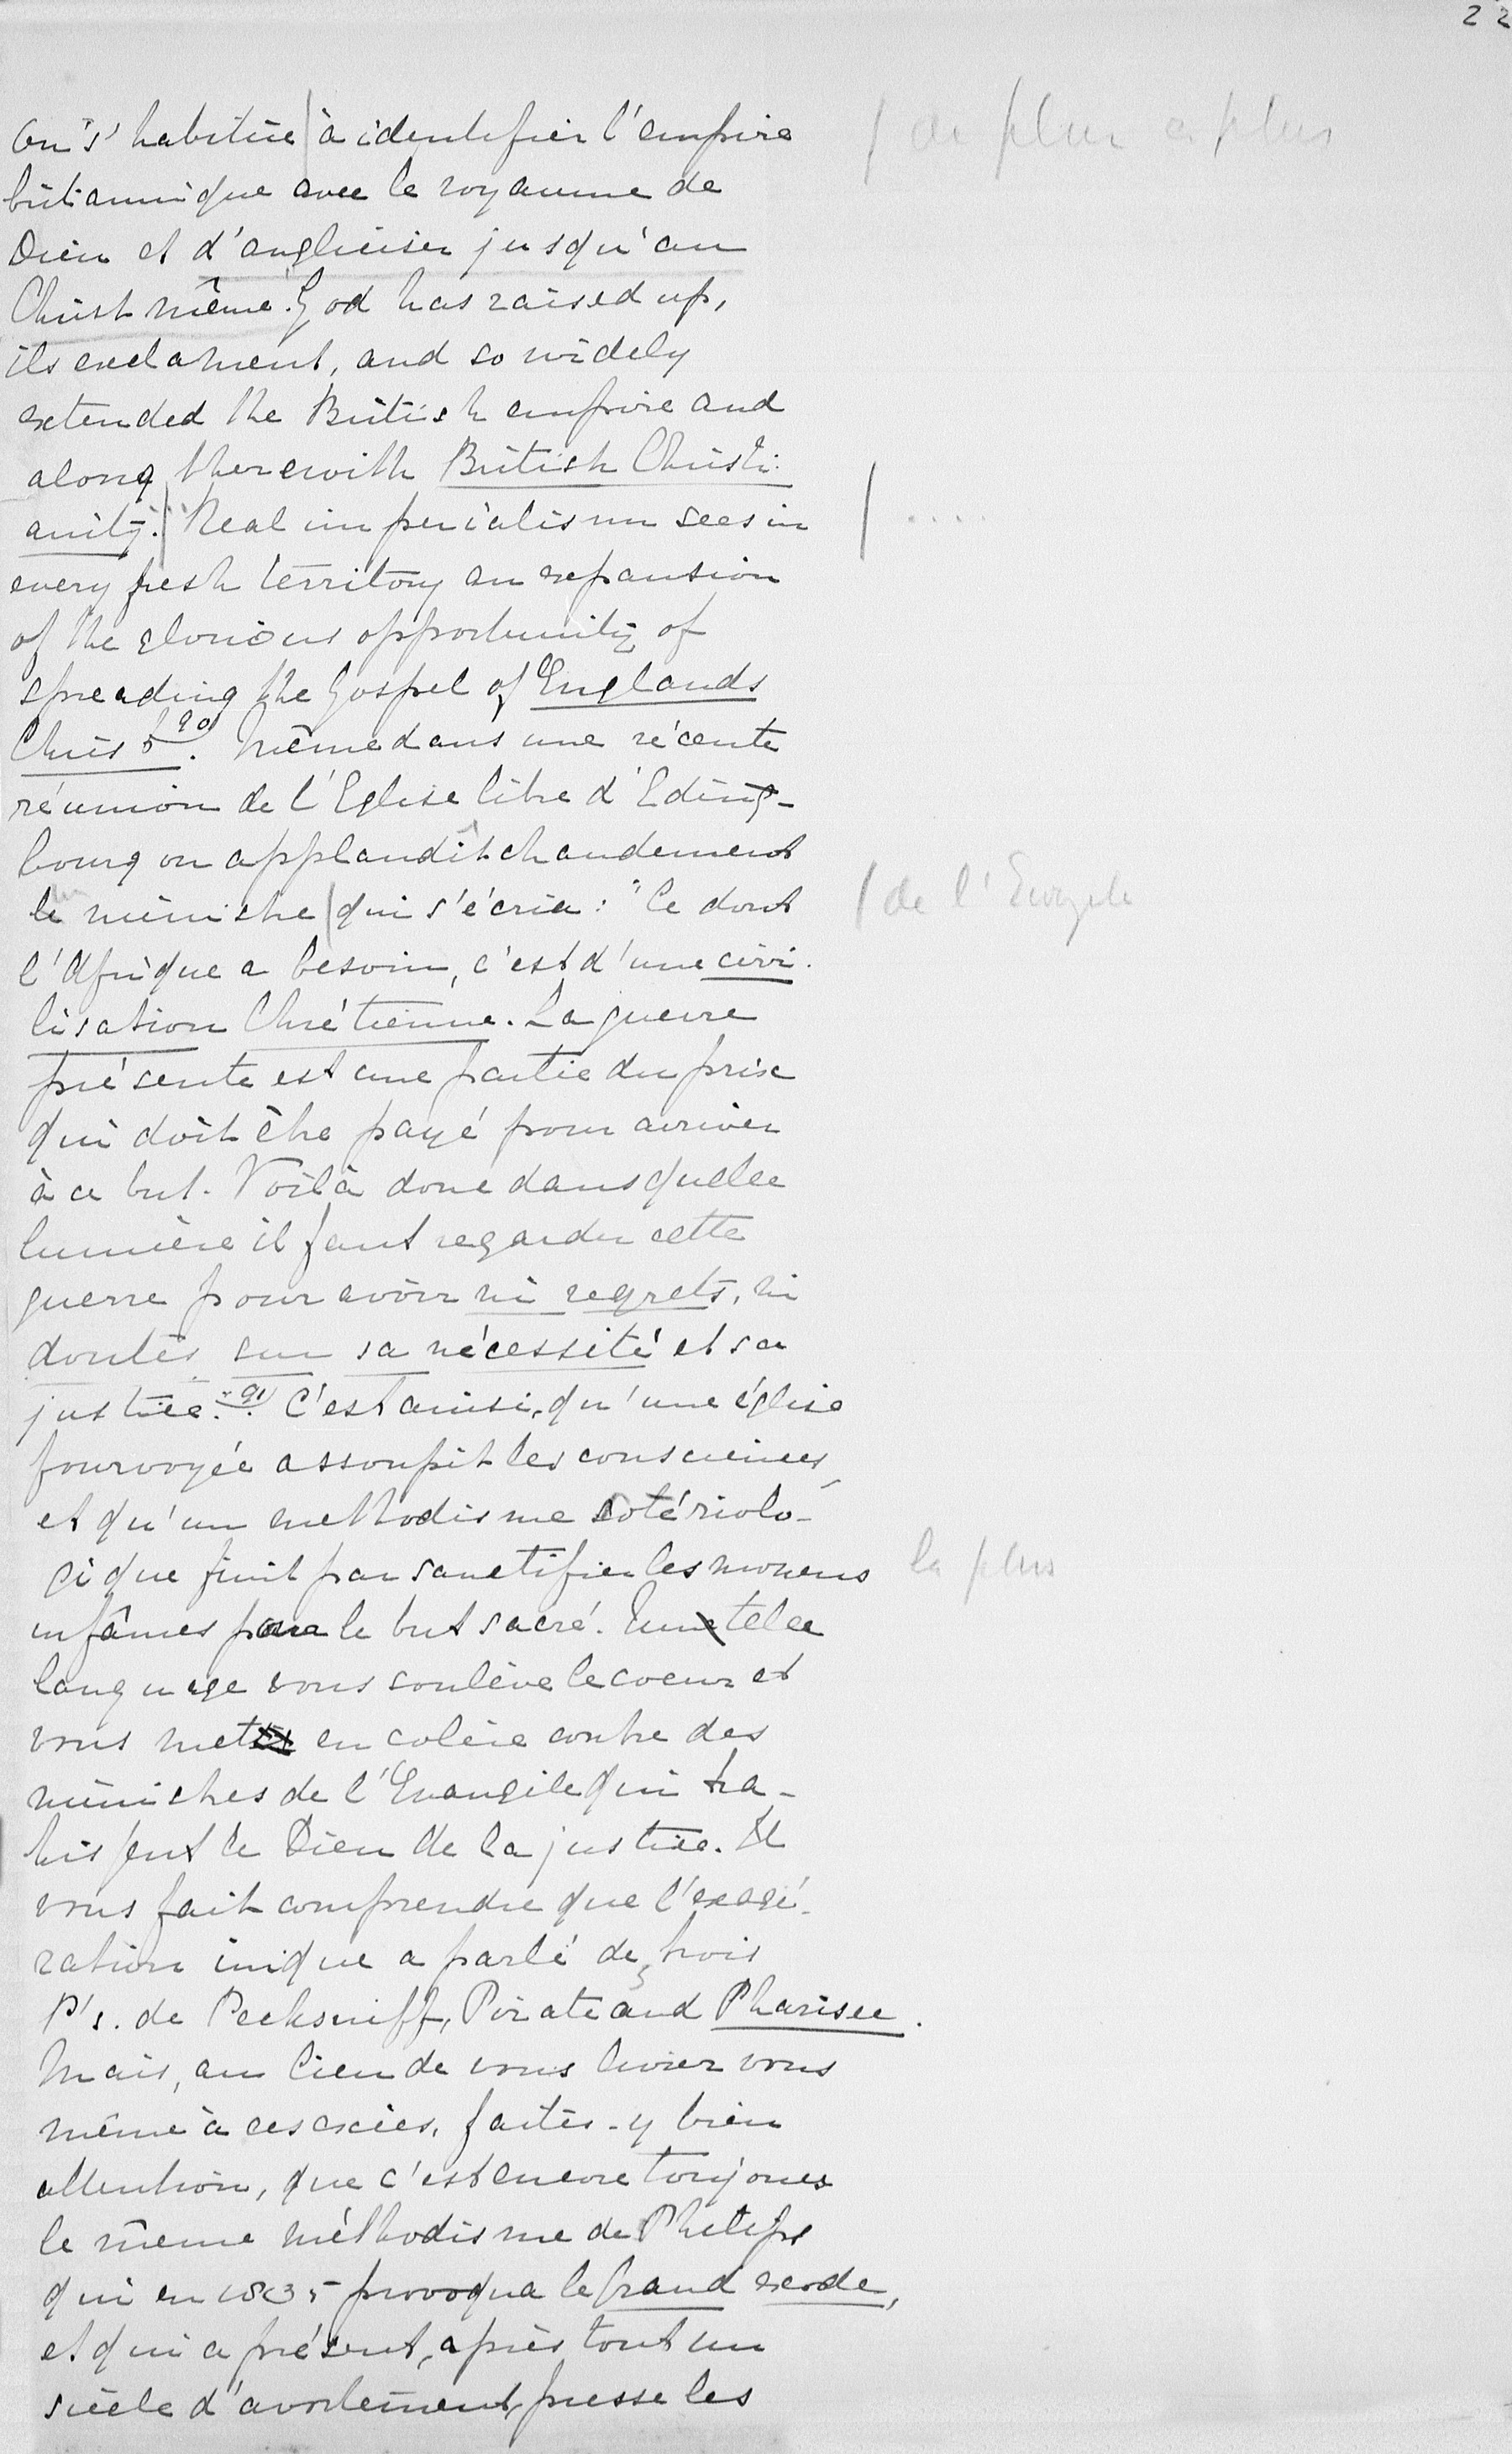 22
On s'habitue à identifier l'empire / de plus en plus
britannique avec le royaume de
Dieu et d'angliciser jusqu'au
Christ même. "God has raised up,
ils exclament, and so widely
extended the British empire and
along therewith British Christi-
anity." Real imperialism sees in / .....
every fresh territory an expansion
of the glorious opportunity of
spreading the Gospel of Englands
Christ 90). Même dans une récente
réunion de l'Eglise libre d'Edin-
bourg on applaudit chaudement
le ministre qui s'écria: "Ce dont / de l'Evangile
l'Afrique a besoin, c'est d'une civi-
lisation Chrétienne. La guerre
présente est une partie du prix
qui doit être payé pour arriver
à ce but. Voilà donc dans quelle
lumière il faut regarder cette
guerre pour avoir ni regrets, ni
doutes sur sa nécessité et sa
justice." 91) C'est ainsi, qu'une église
fourvoyée assoupit les consciences,
et qu'un methodisme sotériolo-
gique finit par sanctifier les moyens la plus
infâmes pour le but sacré. Un telle
language vous soulève le coeur et
vous met en colère contre des
ministres de l'Evangile qui tra-
hissent le Dieu de la justice. Il
vous fait comprendre que l'exagé-
ration inique a parlé de trois
P's. de Pecksniff, Pirate and Pharisee.
Mais, au lieu de vous livrer vous
même à ces excès, faites-y bien
attention, que c'est encore toujours
le même méthodisme de Philips
qui en 1835 provoqua le grand exode,
et qui a présent, après tout un
siècle d'avortement, presse les